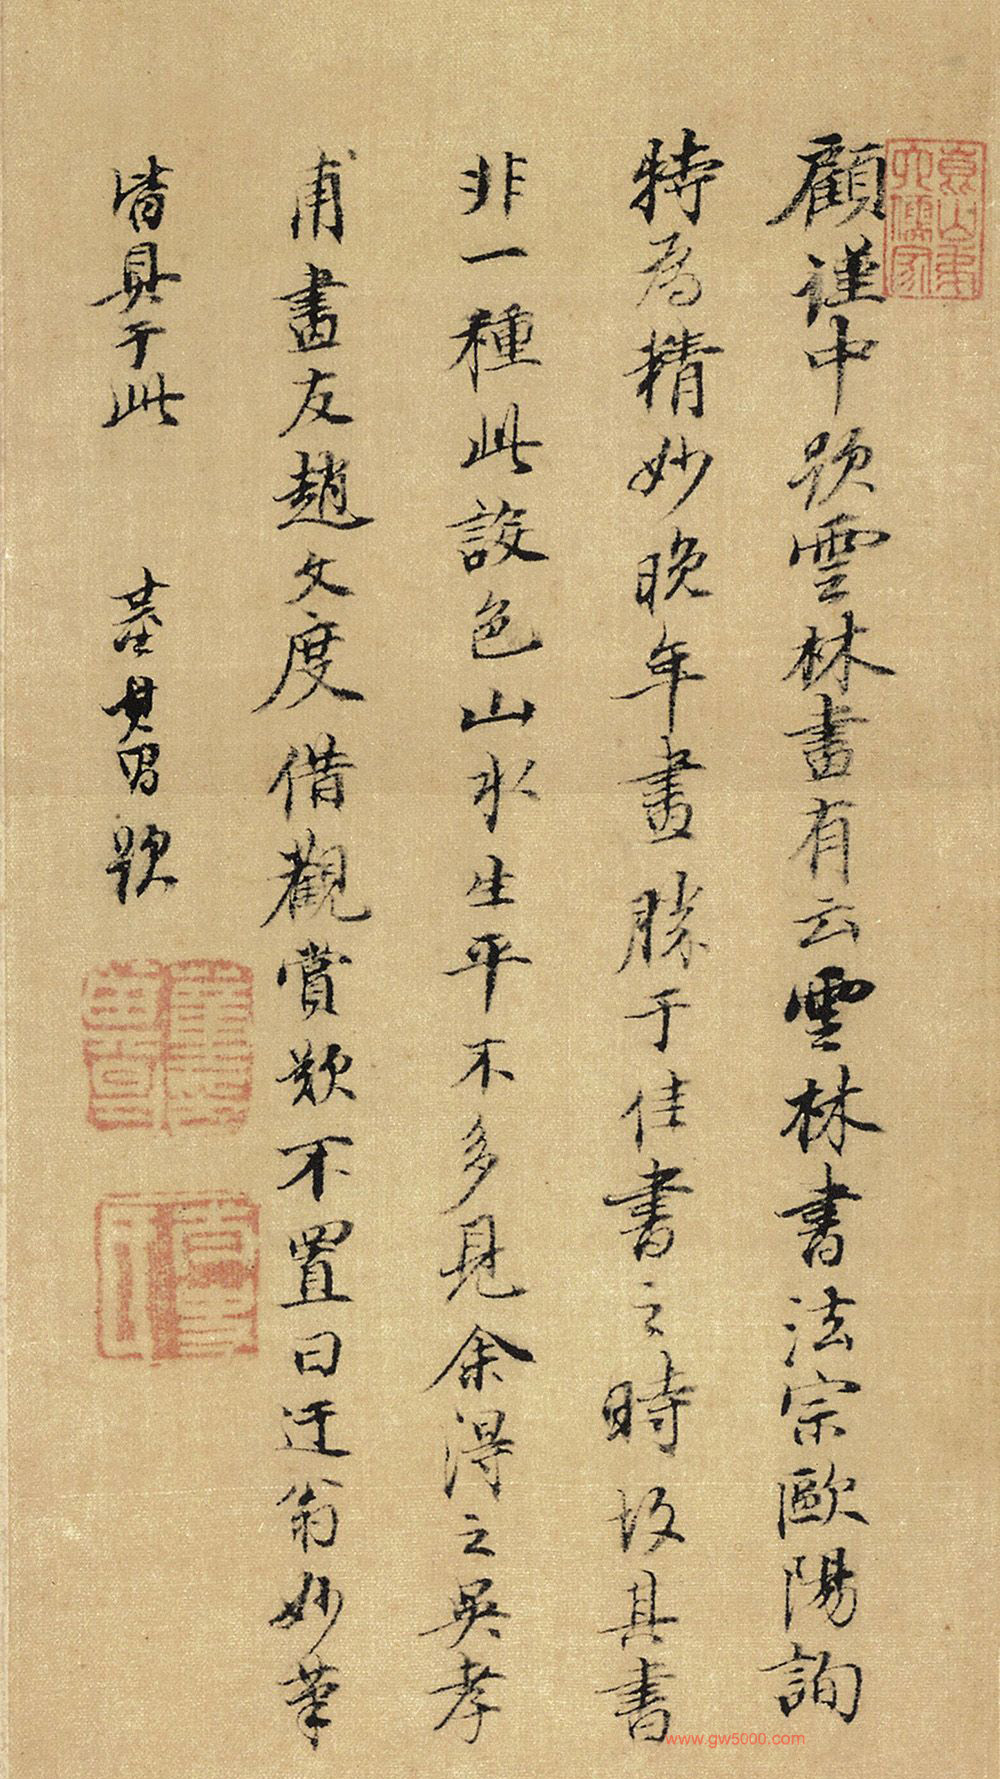 顧謹中題雲林畫有云雲林書法宗歐陽詢
特為精妙晚年畫勝于佳書之時故其書
非一種此設色山水生平不多見余得之吳孝
甫畫友趙文度借觀賞歎不置曰迂翁妙筆
皆具于此 董其昌題
www.gw5000.com